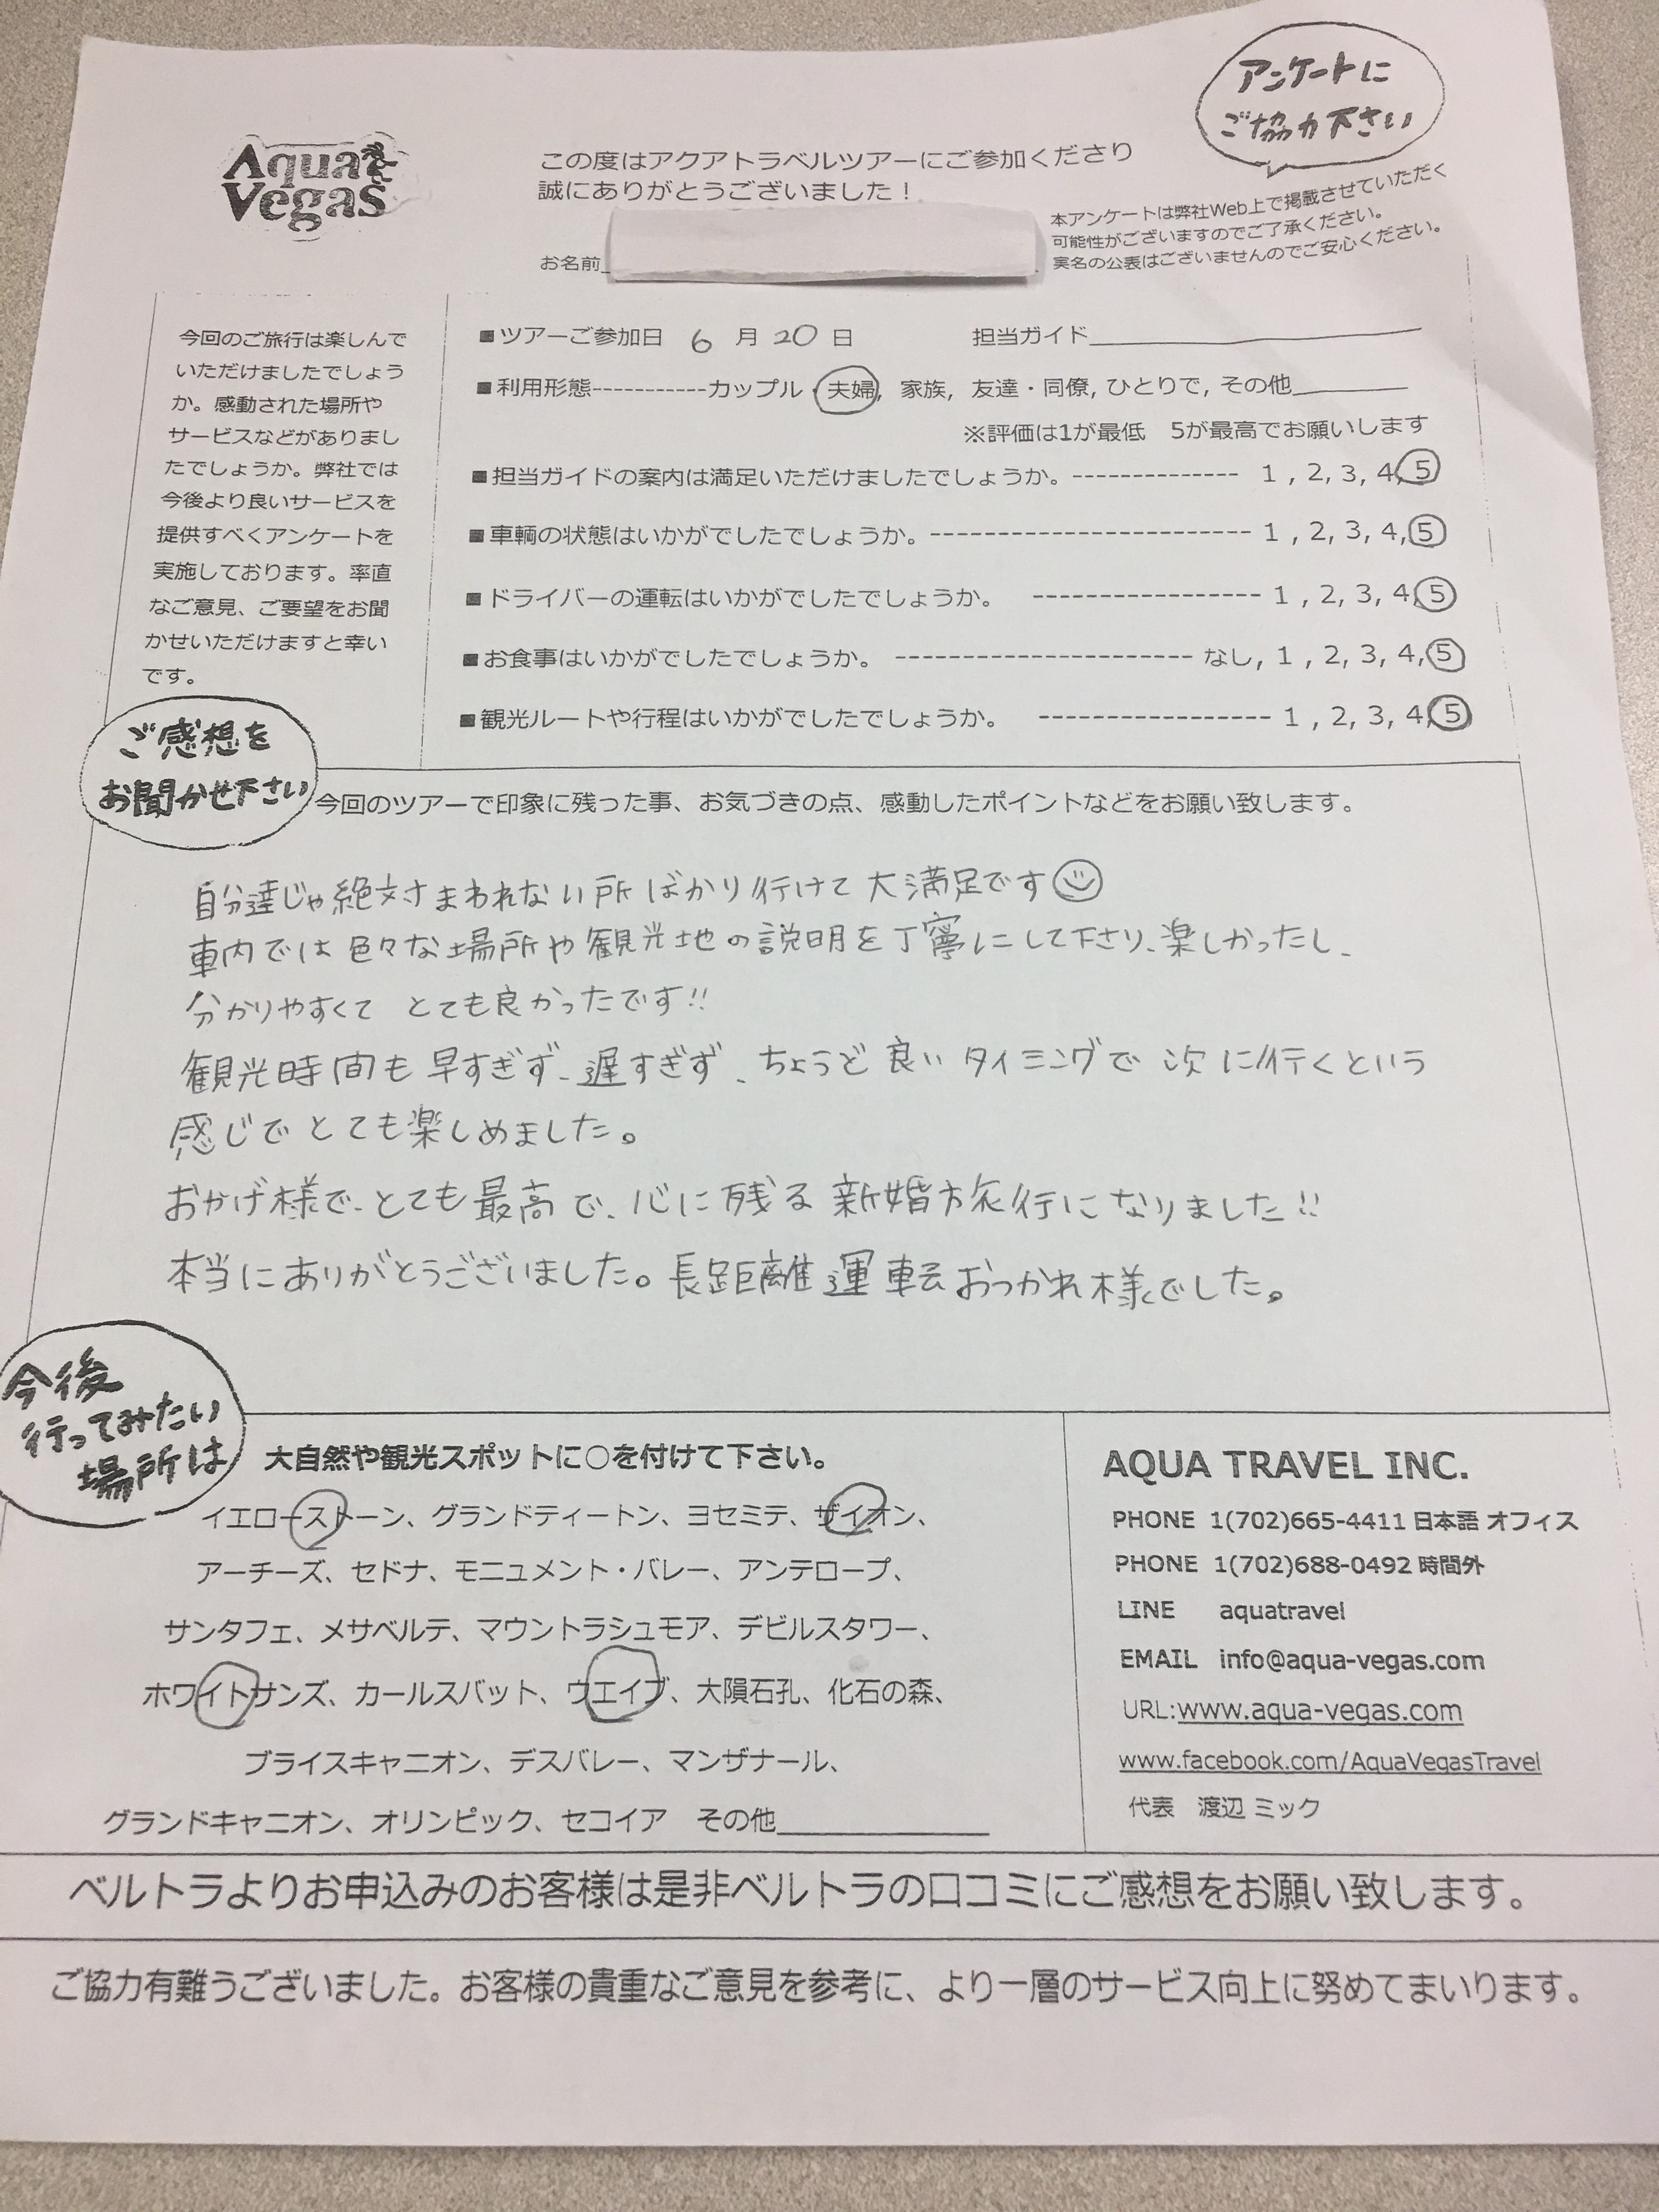 アンケートに
ご協力下さい
Aqua
Vegas
この度はアクアトラベルツアーにご参加くださり
誠にありがとうございました！
お名前
本アンケートは弊社Web上で掲載させていただく
可能性がございますのでご了承ください。
実名の公表はございませんのでご安心ください。
今回のご旅行は楽しんで
いただけましたでしょう
か。感動された場所や
サービスなどがありまし
たでしょうか。弊社では
今後より良いサービスを
提供すべくアンケートを
実施しております。率直
なご意見、ご要望をお聞
かせいただけますと幸い
です。
■ツアーご参加日 6 月 20 日 担当ガイド
■利用形態-----------カップル・夫婦, 家族, 友達・同僚, ひとりで, その他
※評価は1が最低 5が最高でお願いします
■担当ガイドの案内は満足いただけましたでしょうか。------------- 1 , 2, 3, 4, 5
■車輌の状態はいかがでしたでしょうか。------------------------- 1 , 2, 3, 4, 5
■ドライバーの運転はいかがでしたでしょうか。 ----------------- 1 , 2, 3, 4, 5
■お食事はいかがでしたでしょうか。 ---------------------- なし, 1 , 2, 3, 4, 5
■観光ルートや行程はいかがでしたでしょうか。 ----------------- 1 , 2, 3, 4, 5
ご感想を
お聞かせ下さい
今回のツアーで印象に残った事、お気づきの点、感動したポイントなどをお願い致します。
自分達じゃ絶対まわれない所ばかり行けて大満足です
車内では色々な場所や観光地の説明を丁寧にして下さり、楽しかったし、
分かりやすくて とても良かったです!!
観光時間も早すぎず、遅すぎず、ちょうど良いタイミングで次に行くという
感じでとても楽しめました。
おかげ様で、とても最高で、心に残る新婚旅行になりました!!
本当にありがとうございました。長距離運転おつかれ様でした。
今後
行ってみたい
場所は
大自然や観光スポットに○を付けて下さい。
イエローストーン、グランドティートン、ヨセミテ、ザイオン、
アーチーズ、セドナ、モニュメント・バレー、アンテロープ、
サンタフェ、メサベルテ、マウントラシュモア、デビルスタワー、
ホワイトサンズ、カールスバット、ウエイブ、大隕石孔、化石の森、
ブライスキャニオン、デスバレー、マンザナール、
グランドキャニオン、オリンピック、セコイア その他
AQUA TRAVEL INC.
PHONE 1(702)665-4411 日本語 オフィス
PHONE 1(702)688-0492 時間外
LINE aquatravel
EMAIL info@aqua-vegas.com
URL:www.aqua-vegas.com
www.facebook.com/AquaVegasTravel
代表 渡辺 ミック
ベルトラよりお申込みのお客様は是非ベルトラの口コミにご感想をお願い致します。
ご協力有難うございました。お客様の貴重なご意見を参考に、より一層のサービス向上に努めてまいります。